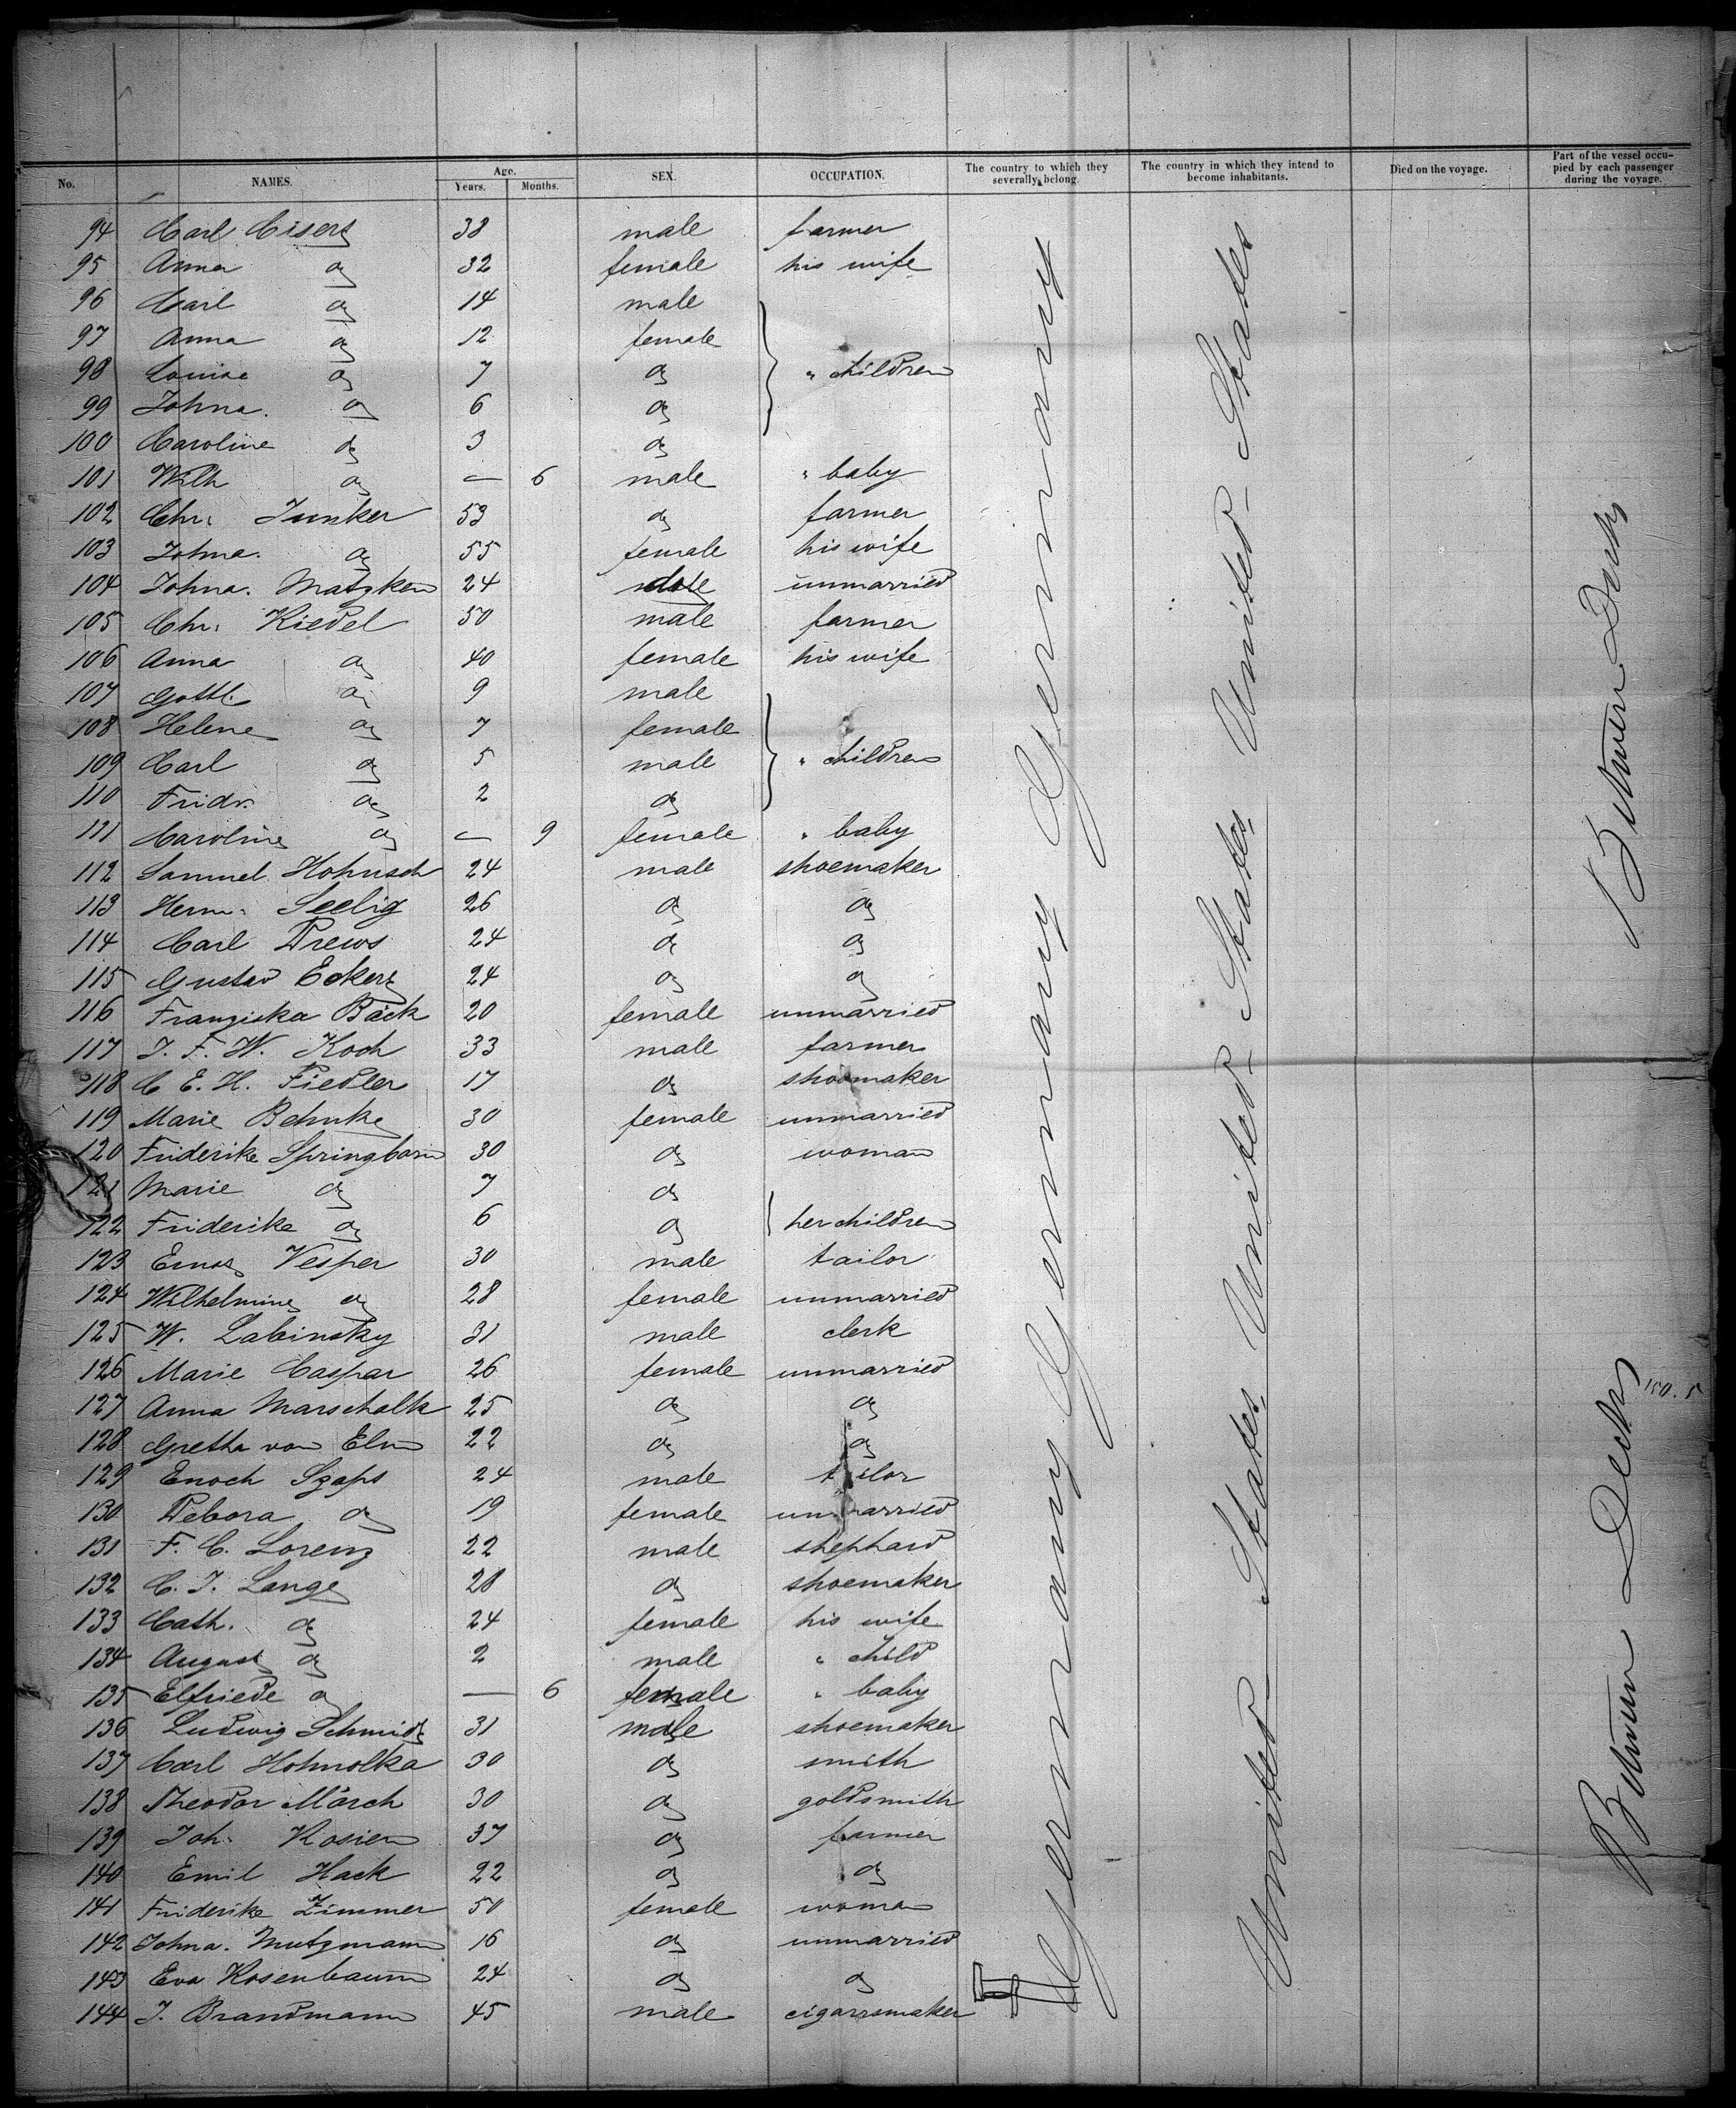 No. NAMES. Age. Years. Months. SEX. OCCUPATION. The country to which they severally belong. The country in which they intend to become inhabitants. Died on the voyage. Part of the vessel occupied by each passenger during the voyage.
94 Carl Eisert 38 male farmer
95 Anna do 32 female his wife
96 Carl do 14 male
97 Anna do 12 female
98 Louise do 7 do " children
99 Johna. do 6 do
100 Caroline do 3 do
101 Wilh do — 6 male " baby
102 Chr. Junker 53 do farmer
103 Johna. do 55 female his wife
104 Johna. Matzken 24 do unmarried
105 Chr. Riedel 50 male farmer
106 Anna do 40 female his wife
107 Gottl. do 9 male
108 Helene do 7 female
109 Carl do 5 male " children
110 Fridr. do 2 do
111 Caroline do — 9 female " baby
112 Samuel Hohnsch 24 male shoemaker
113 Herm. Seelig 26 do do
114 Carl Drews 24 do do
115 Gustav Eckert 24 do do
116 Franziska Bäck 20 female unmarried
117 J. F. W. Koch 33 male farmer
118 C E. H. Fiedler 17 do shoemaker
119 Marie Behnke 30 female unmarried
120 Friderike Springborn 30 do woman
121 Marie do 7 do
122 Friderike do 6 do her children
123 Ernst Vesper 30 male tailor
124 Wilhelmine do 28 female unmarried
125 W. Labinsky 31 male clerk
126 Marie Caspar 26 female unmarried
127 Anna Marschalk 25 do do
128 Gretha von Elm 22 do do
129 Enoch Szaps 24 male tailor
130 Debora do 19 female unmarried
131 F. C. Lorenz 22 male shephard
132 C. J. Lange 28 do shoemaker
133 Cath. do 24 female his wife
134 August do 2 male " child
135 Elfriede do — 6 female " baby
136 Ludwig Schmidt 31 male shoemaker
137 Carl Hohnolka 30 do smith
138 Theodor Mörch 30 do goldsmith
139 Joh. Rosien 37 do farmer
140 Emil Hack 22 do do
141 Friderike Zimmer 50 female woman
142 Johna. Mutzmann 16 do unmarried
143 Eva Rosenbaum 24 do do
144 J. Brandmann 45 male cigarrsmaker
Germany Germany Germany
United States United States United States
Between Decks Between Decks